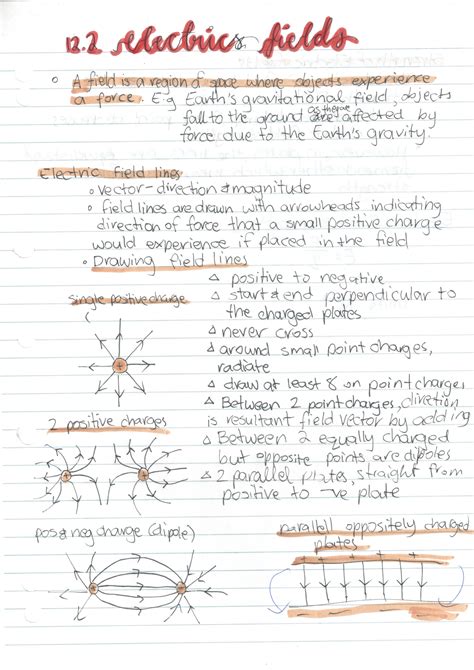 12.2 electric fields
A field is a region of space where objects experience
a force. E.g Earth's gravitational field, objects
fall to the ground as they are affected by
force due to the Earth's gravity.
Electric field lines
vector - direction & magnitude
field lines are drawn with arrowheads indicating
direction of force that a small positive charge
would experience if placed in the field
Drawing field lines
△ positive to negative
△ start & end perpendicular to
the charged plates
△ never cross
△ around small point charges,
radiate
△ draw at least 8 on point charges
△ Between 2 point charges, direction
is resultant field vector by adding
△ Between 2 equally charged
but opposite points are dipoles
△ 2 parallel plates, straight from
positive to -ve plate
single positive charge
+
2 positive charges
+ +
pos & neg charge (dipole)
parallell oppositely charged
plates
+ + + +